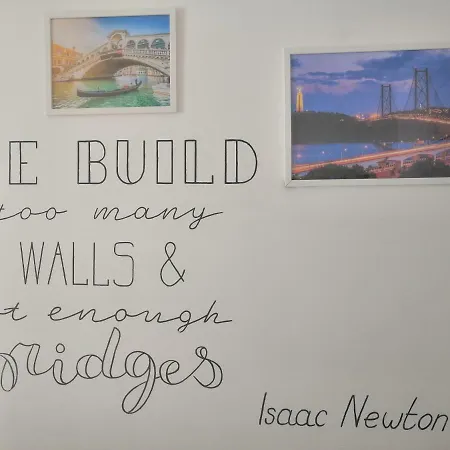 E BUILD
too many
WALLS &
t enough
bridges
Isaac Newton